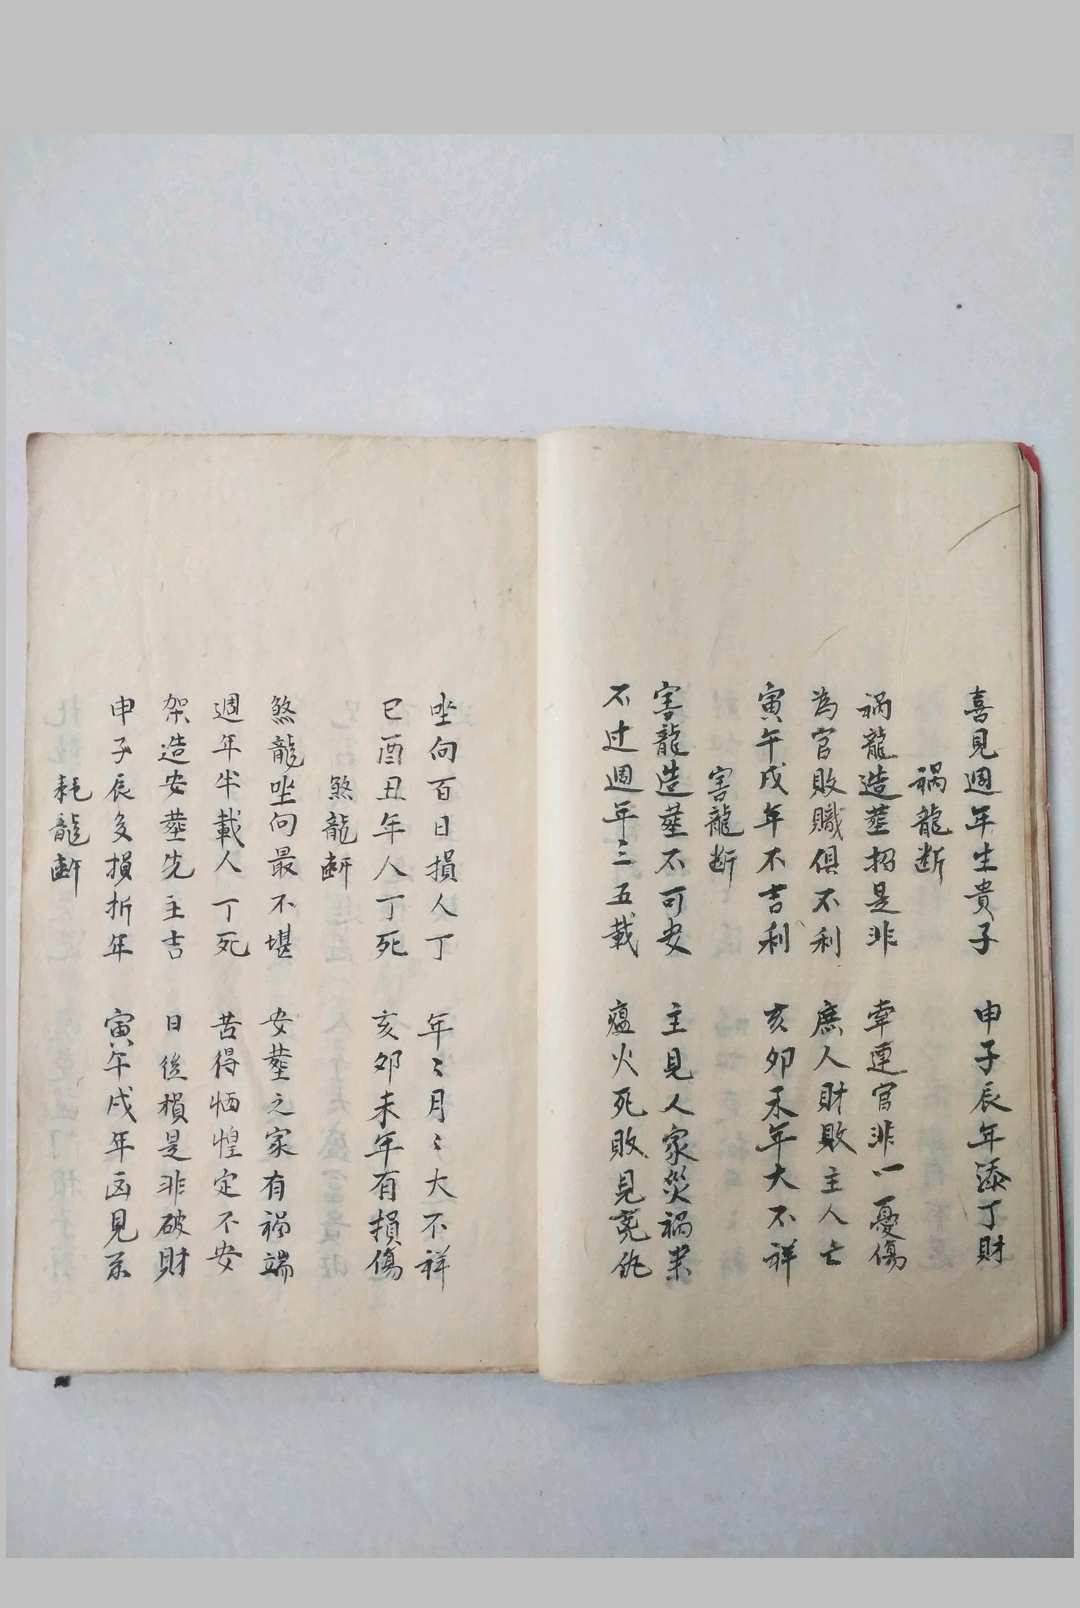 喜見週年生貴子 申子辰年添丁財
祸龍断
祸龍造塟招是非 牽連官非一憂傷
為官敗職俱不利 庶人財敗主人亡
寅午戌年不吉利 亥卯未年大不祥
害龍断
害龍造塟不可安 主見人家災祸来
不过週年三五載 瘟火死敗見冤仇
坐向百日損人丁 年〻月〻大不祥
巳酉丑年人丁死 亥卯未年有損傷
煞龍断
煞龍坐向最不堪 安塟之家有禍端
週年半載人丁死 苦得恓惶定不安
架造安塟先主吉 日後損是非破財
申子辰多損折年 寅午戌年凶見
耗龍断